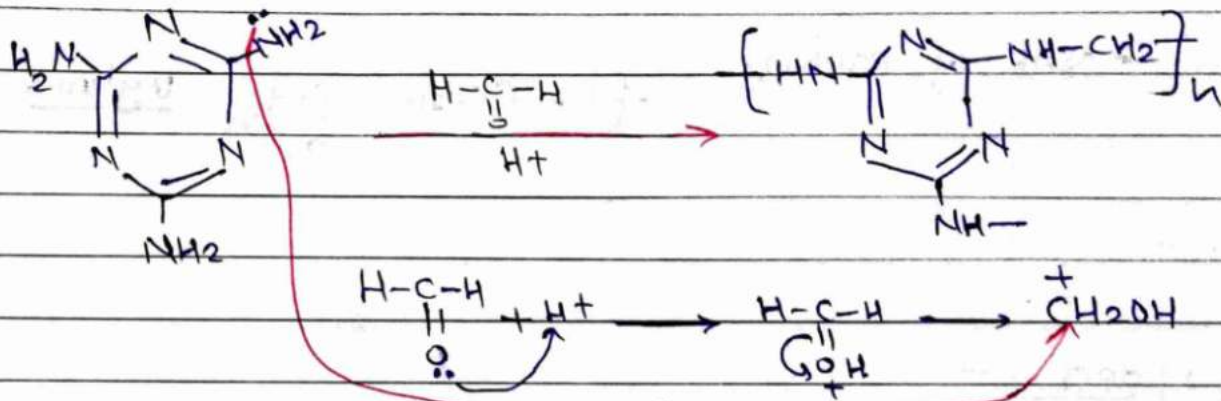 H2N N N̈H2
N N
NH2
H-C-H
||
O
H+
[HN N NH-CH2]n
N N
NH-
H-C-H + H+ → H-C-H → +CH2OH
|| ||
O OH
+